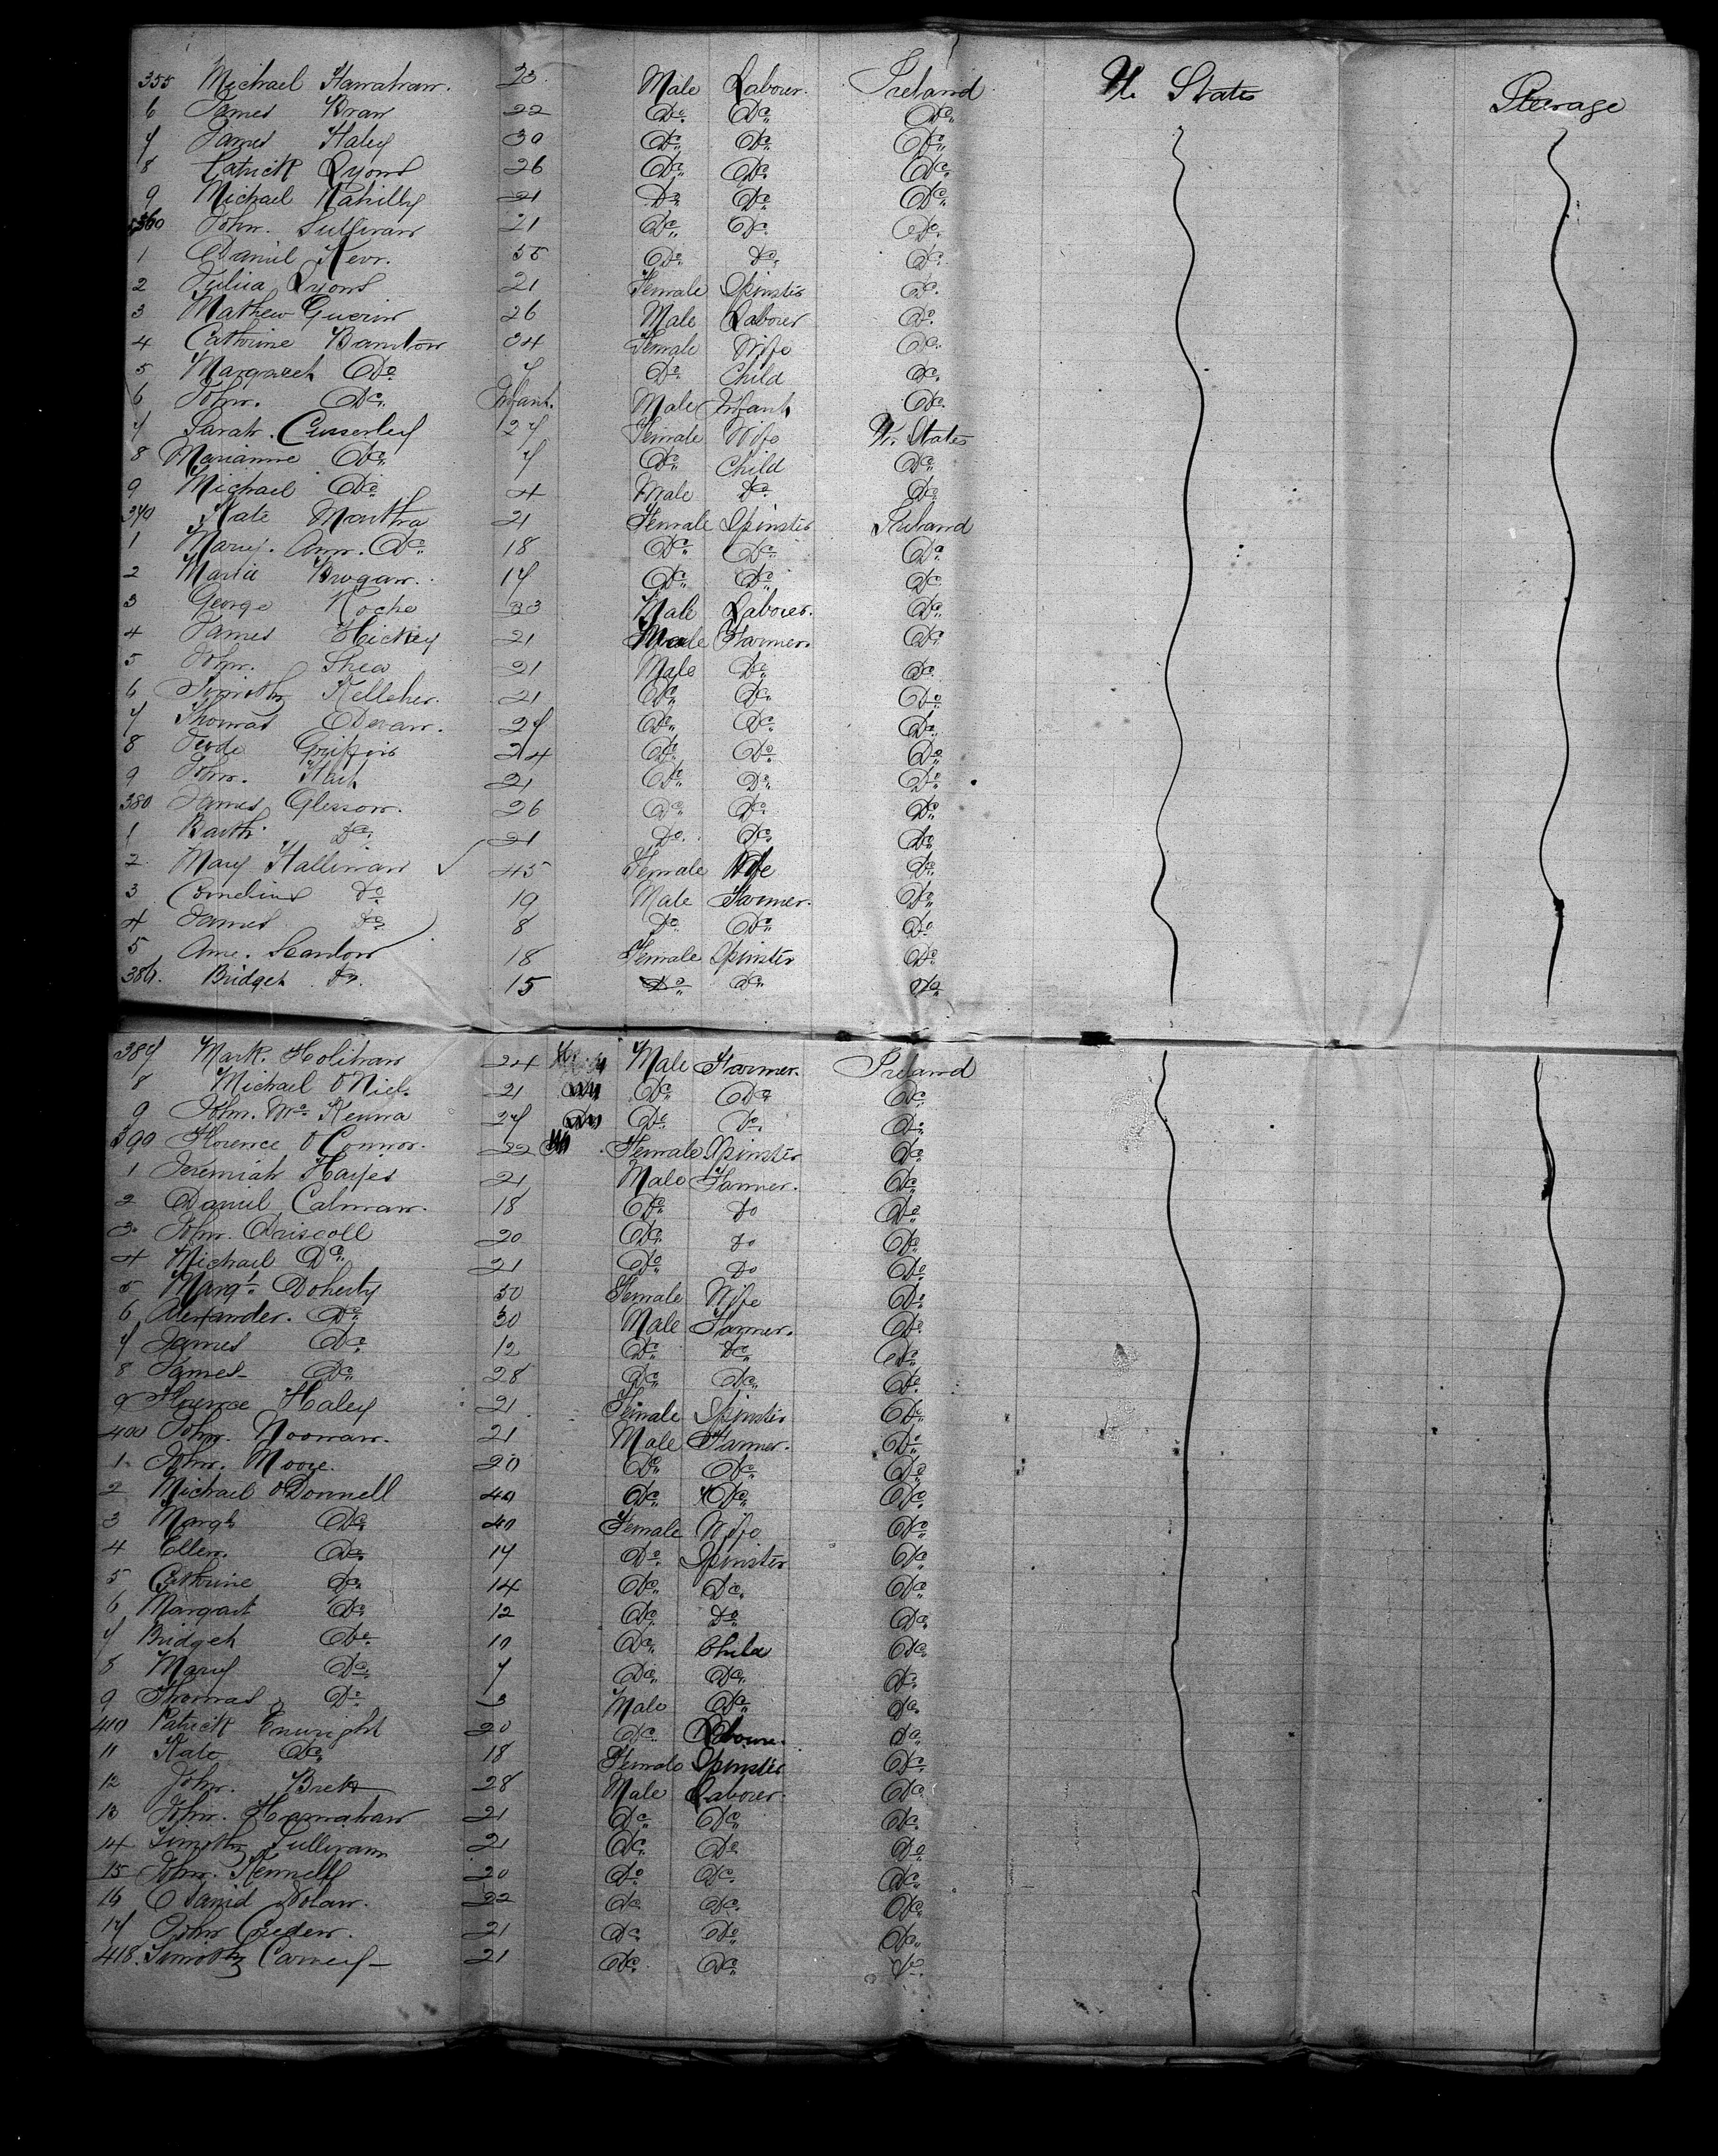 355 Michael Hanrahan. 23. Male Labourer. Ireland U. States Steerage
6 James Bran 22 Do. Do. Do.
7 James Haley 30 Do. Do. Do.
8 Patrick Lyons 26 Do. Do. Do.
9 Michael Rahilly 21 Do Do Do.
360 John. Sullivan 21 Do. Do. Do.
1 Daniel Keor. 55 Do. Do. Do.
2 Julia Lyons 21 Female Spinster Do.
3 Mathew Guerin 26 Male Laborer Do.
4 Cathrine 34 Female Wife Do.
5 Margaret Do 7 Do Child Do.
6 John. Do. Infant. Male Infant Do.
7 Sarah. Cusserley 27 Female Wife U. States
8 Marianne Do. 7 Do. Child Do.
9 Michael Do. 4 Male Do. Do.
370 Kate Martha 21 Female Spinster Ireland
1 Mary. Ann. Do. 18 Do. Do. Do.
2 Maria Brogan. 17 Do. Do. Do.
3 George Roche 33 Male Laborer. Do.
4 James Hickey 21 Male Farmer. Do.
5 John. Shea 21 Male Do. Do.
6 Timothy Kelleher. 21 Do. Do. Do.
7 Thomas Devan. 27 Do. Do. Do.
8 24 Do. Do. Do.
9 John. Hart 21 Do. Do. Do.
380 James Glesson. 26 Do. Do. Do.
1 Barth. Do. 21 Do. Do. Do.
2 Mary Hallinan 45 Female Wife Do.
3 Cornelius Do 19 Male Farmer. Do.
4 James Do 8 Do Do. Do
5 Anne. Scanlon 18 Female Spinster Do.
386. Bridget Do. 15 Do. Do. Do.
387 Mark. Holihan 24 Male Farmer. Ireland
8 Michael O'Niel. 21 Do. Do. Do.
9 John. Mc Kenna 27 Do. Do. Do.
390 Florence O'Connor. 22 Female Spinster Do.
1 Jeremiah Hayes 21 Male Farmer. Do.
2 Daniel Calman. 18 Do. Do Do.
3 John. Driscoll 20 Do. Do Do.
4 Michael Do. 21 Do. Do Do.
5 Margt. Doherty 50 Female Wife Do.
6 Alexander. Do. 30 Male Farmer. Do.
7 James Do. 12 Do. Do. Do.
8 James Do. 28 Do. Do. Do.
9 Florence Haley 21 Female Spinster Do.
400 John. Noonan. 21 Male Farmer. Do.
1 John. Moore. 20 Do. Do. Do.
2 Michael O'Donnell 40 Do. Do. Do.
3 Margt Do. 40 Female Wife Do.
4 Ellen. Do. 17 Do. Spinster Do.
5 Cathrine Do. 14 Do. Do. Do.
6 Margart Do. 12 Do. Do. Do.
7 Bridget Do. 10 Do. Child Do.
8 Mary Do. 7 Do. Do. Do.
9 Thomas Do. 3 Male Do. Do.
410 Patrick Enwright 20 Do. Do.
11 Kate Do. 18 Female Spinster Do.
12 John. Brett 28 Male Laborer. Do.
13 John. Hanrahan 21 Do. Do. Do.
14 Timothy Sullivan 21 Do. Do. Do.
15 John. Kennelly 20 Do. Do. Do.
16 Daniel Nolan. 22 Do. Do. Do.
17 John Creden. 21 Do. Do. Do.
418. Timothy Carney 21 Do. Do. Do.